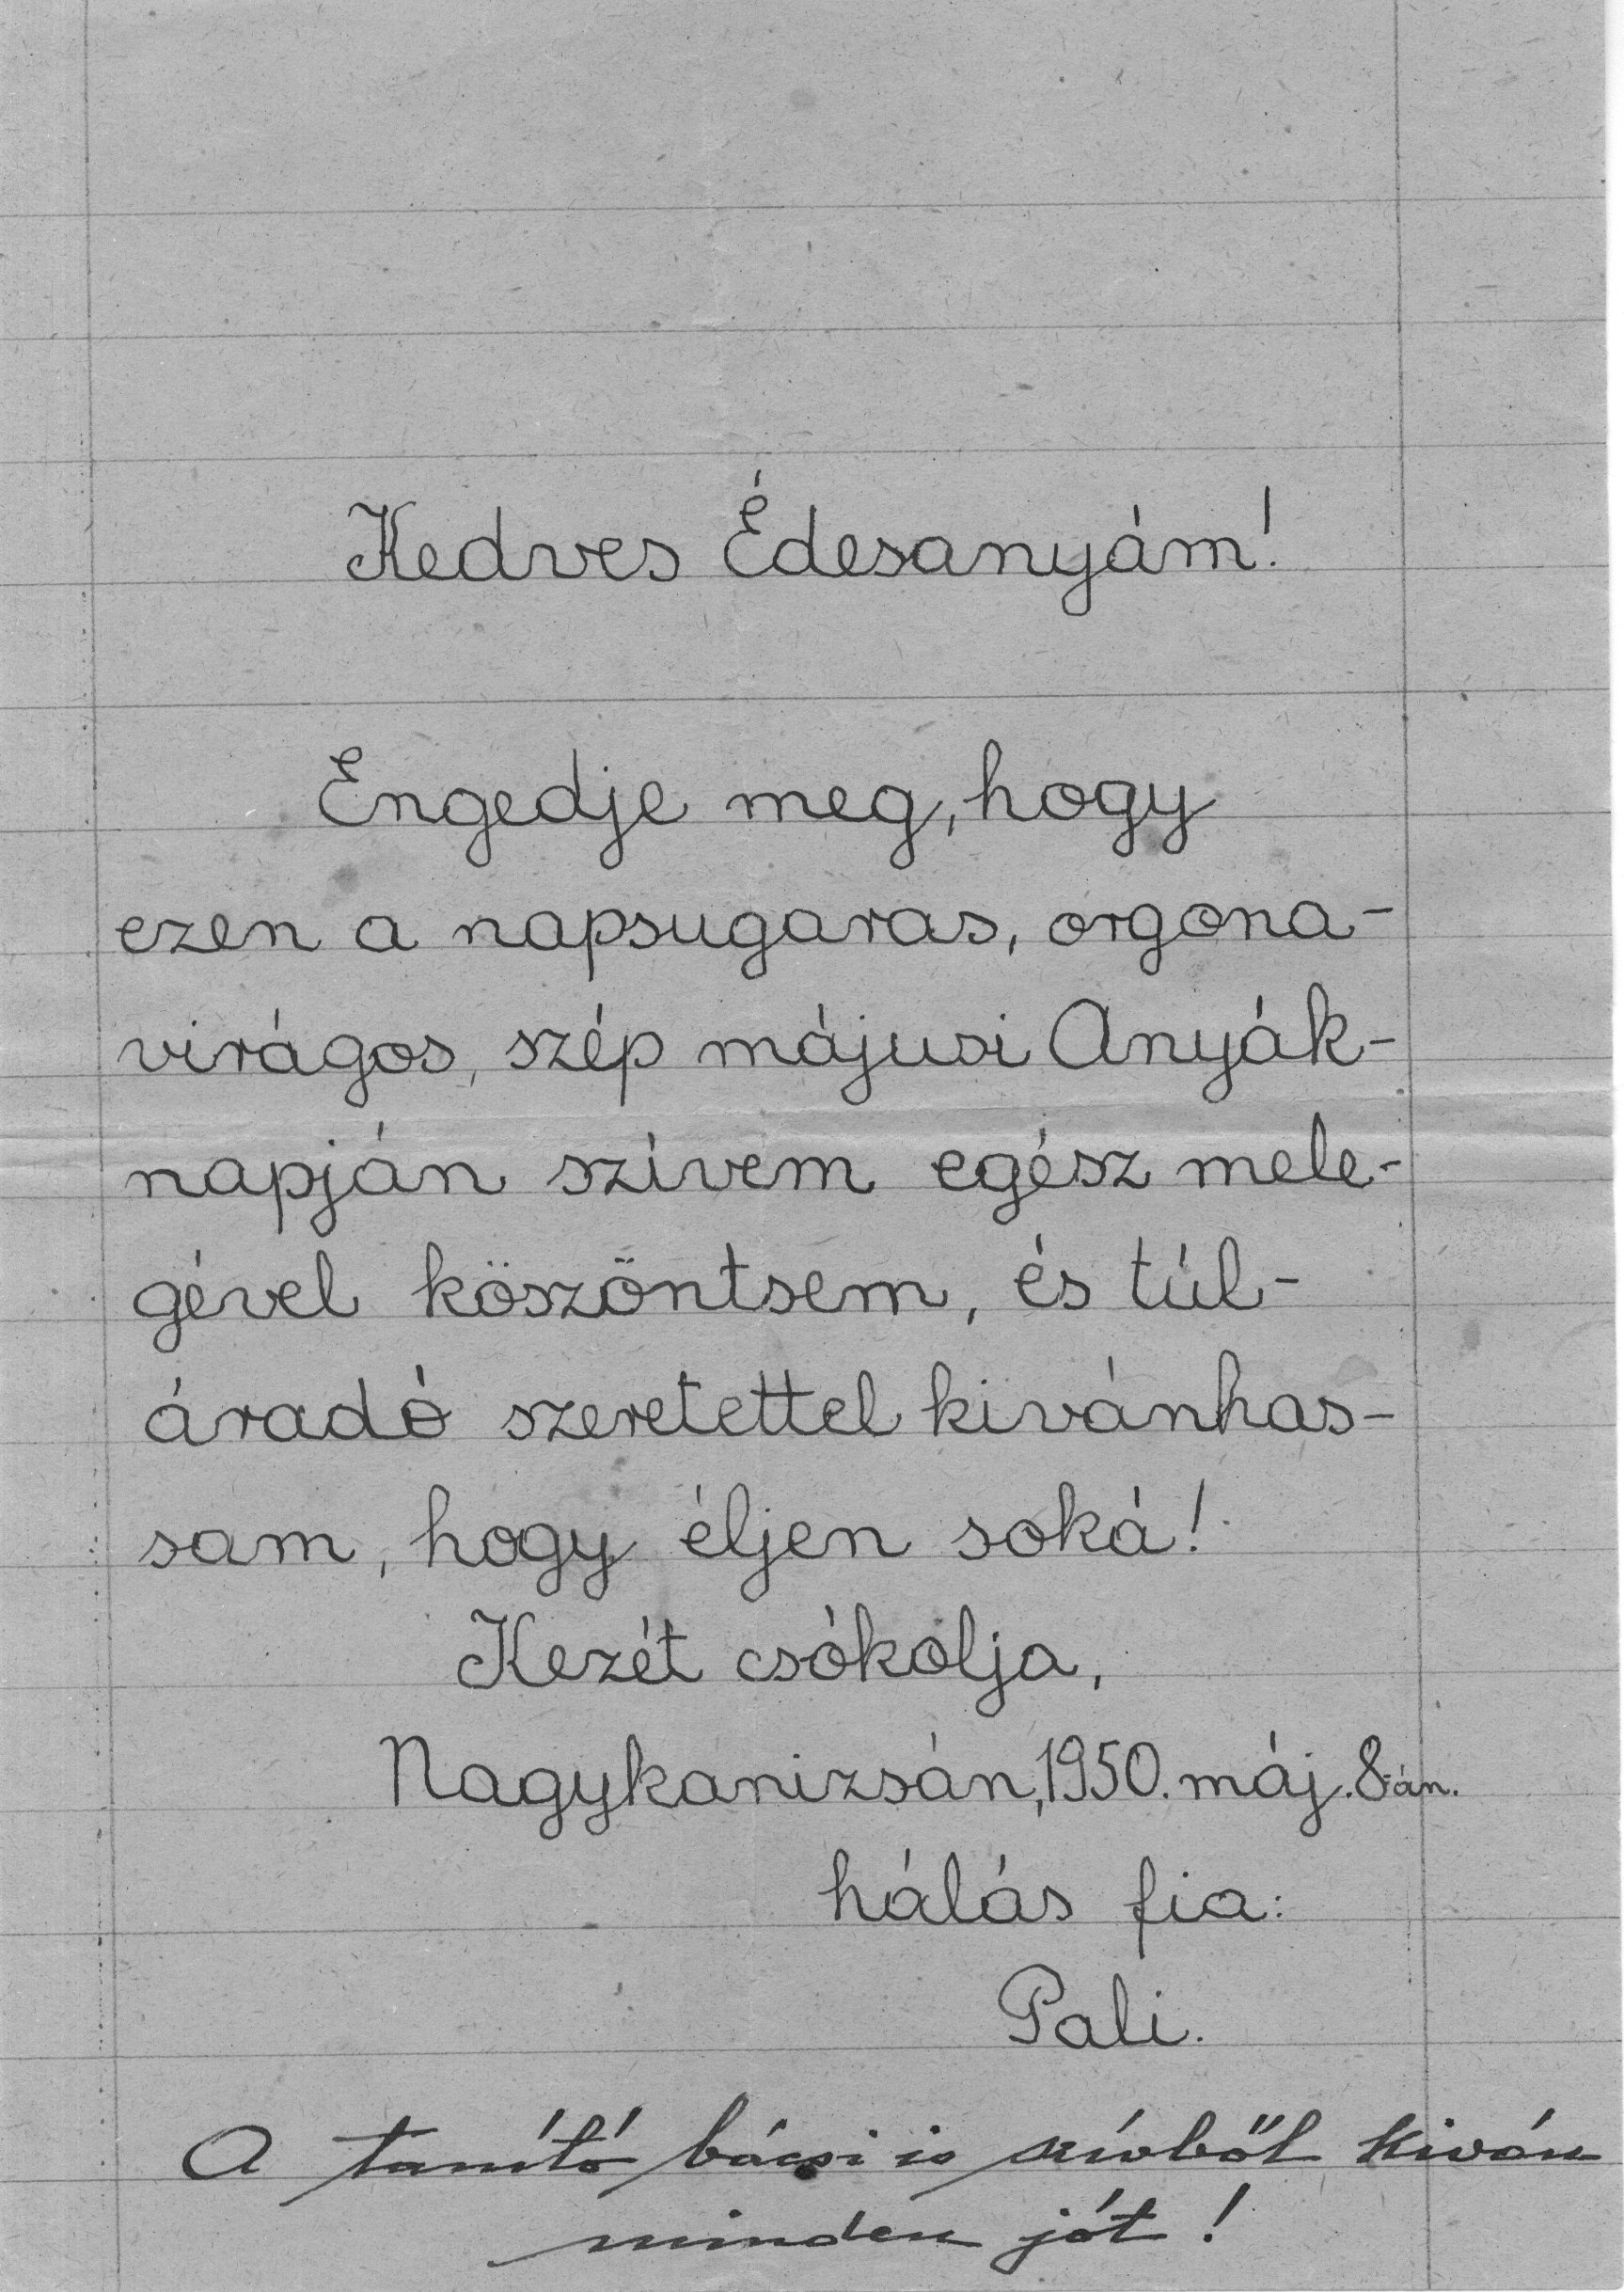 Kedves Édesanyám!
Engedje meg, hogy
ezen a napsugaras, orgona-
virágos, szép májusi Anyák-
napján szívem egész mele-
gével köszöntsem, és túl-
áradó szeretettel kivánhas-
sam, hogy éljen soká!
Kezét csókolja,
Nagykanizsán, 1950. máj. 8-án.
hálás fia:
Pali.
A tanító bácsi is szívből kiván
minden jót!